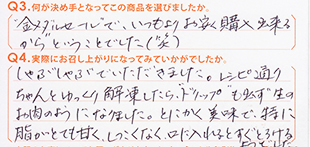 Q3.何が決め手となってこの商品を選びましたか。
"金メダルセール"で、いつもよりお安く購入出来る
から"ということでした(笑)
Q4.実際にお召し上がりになってみていかがでしたか。
しゃぶしゃぶでいただきました。レシピ通り
ちゃんとゆっくり解凍したら、"ドリップ"も出ず"生の
お肉のようになりました。とにかく美味で、特に
脂がとても甘く、しつこくなく、口に入れるとすぐとろける